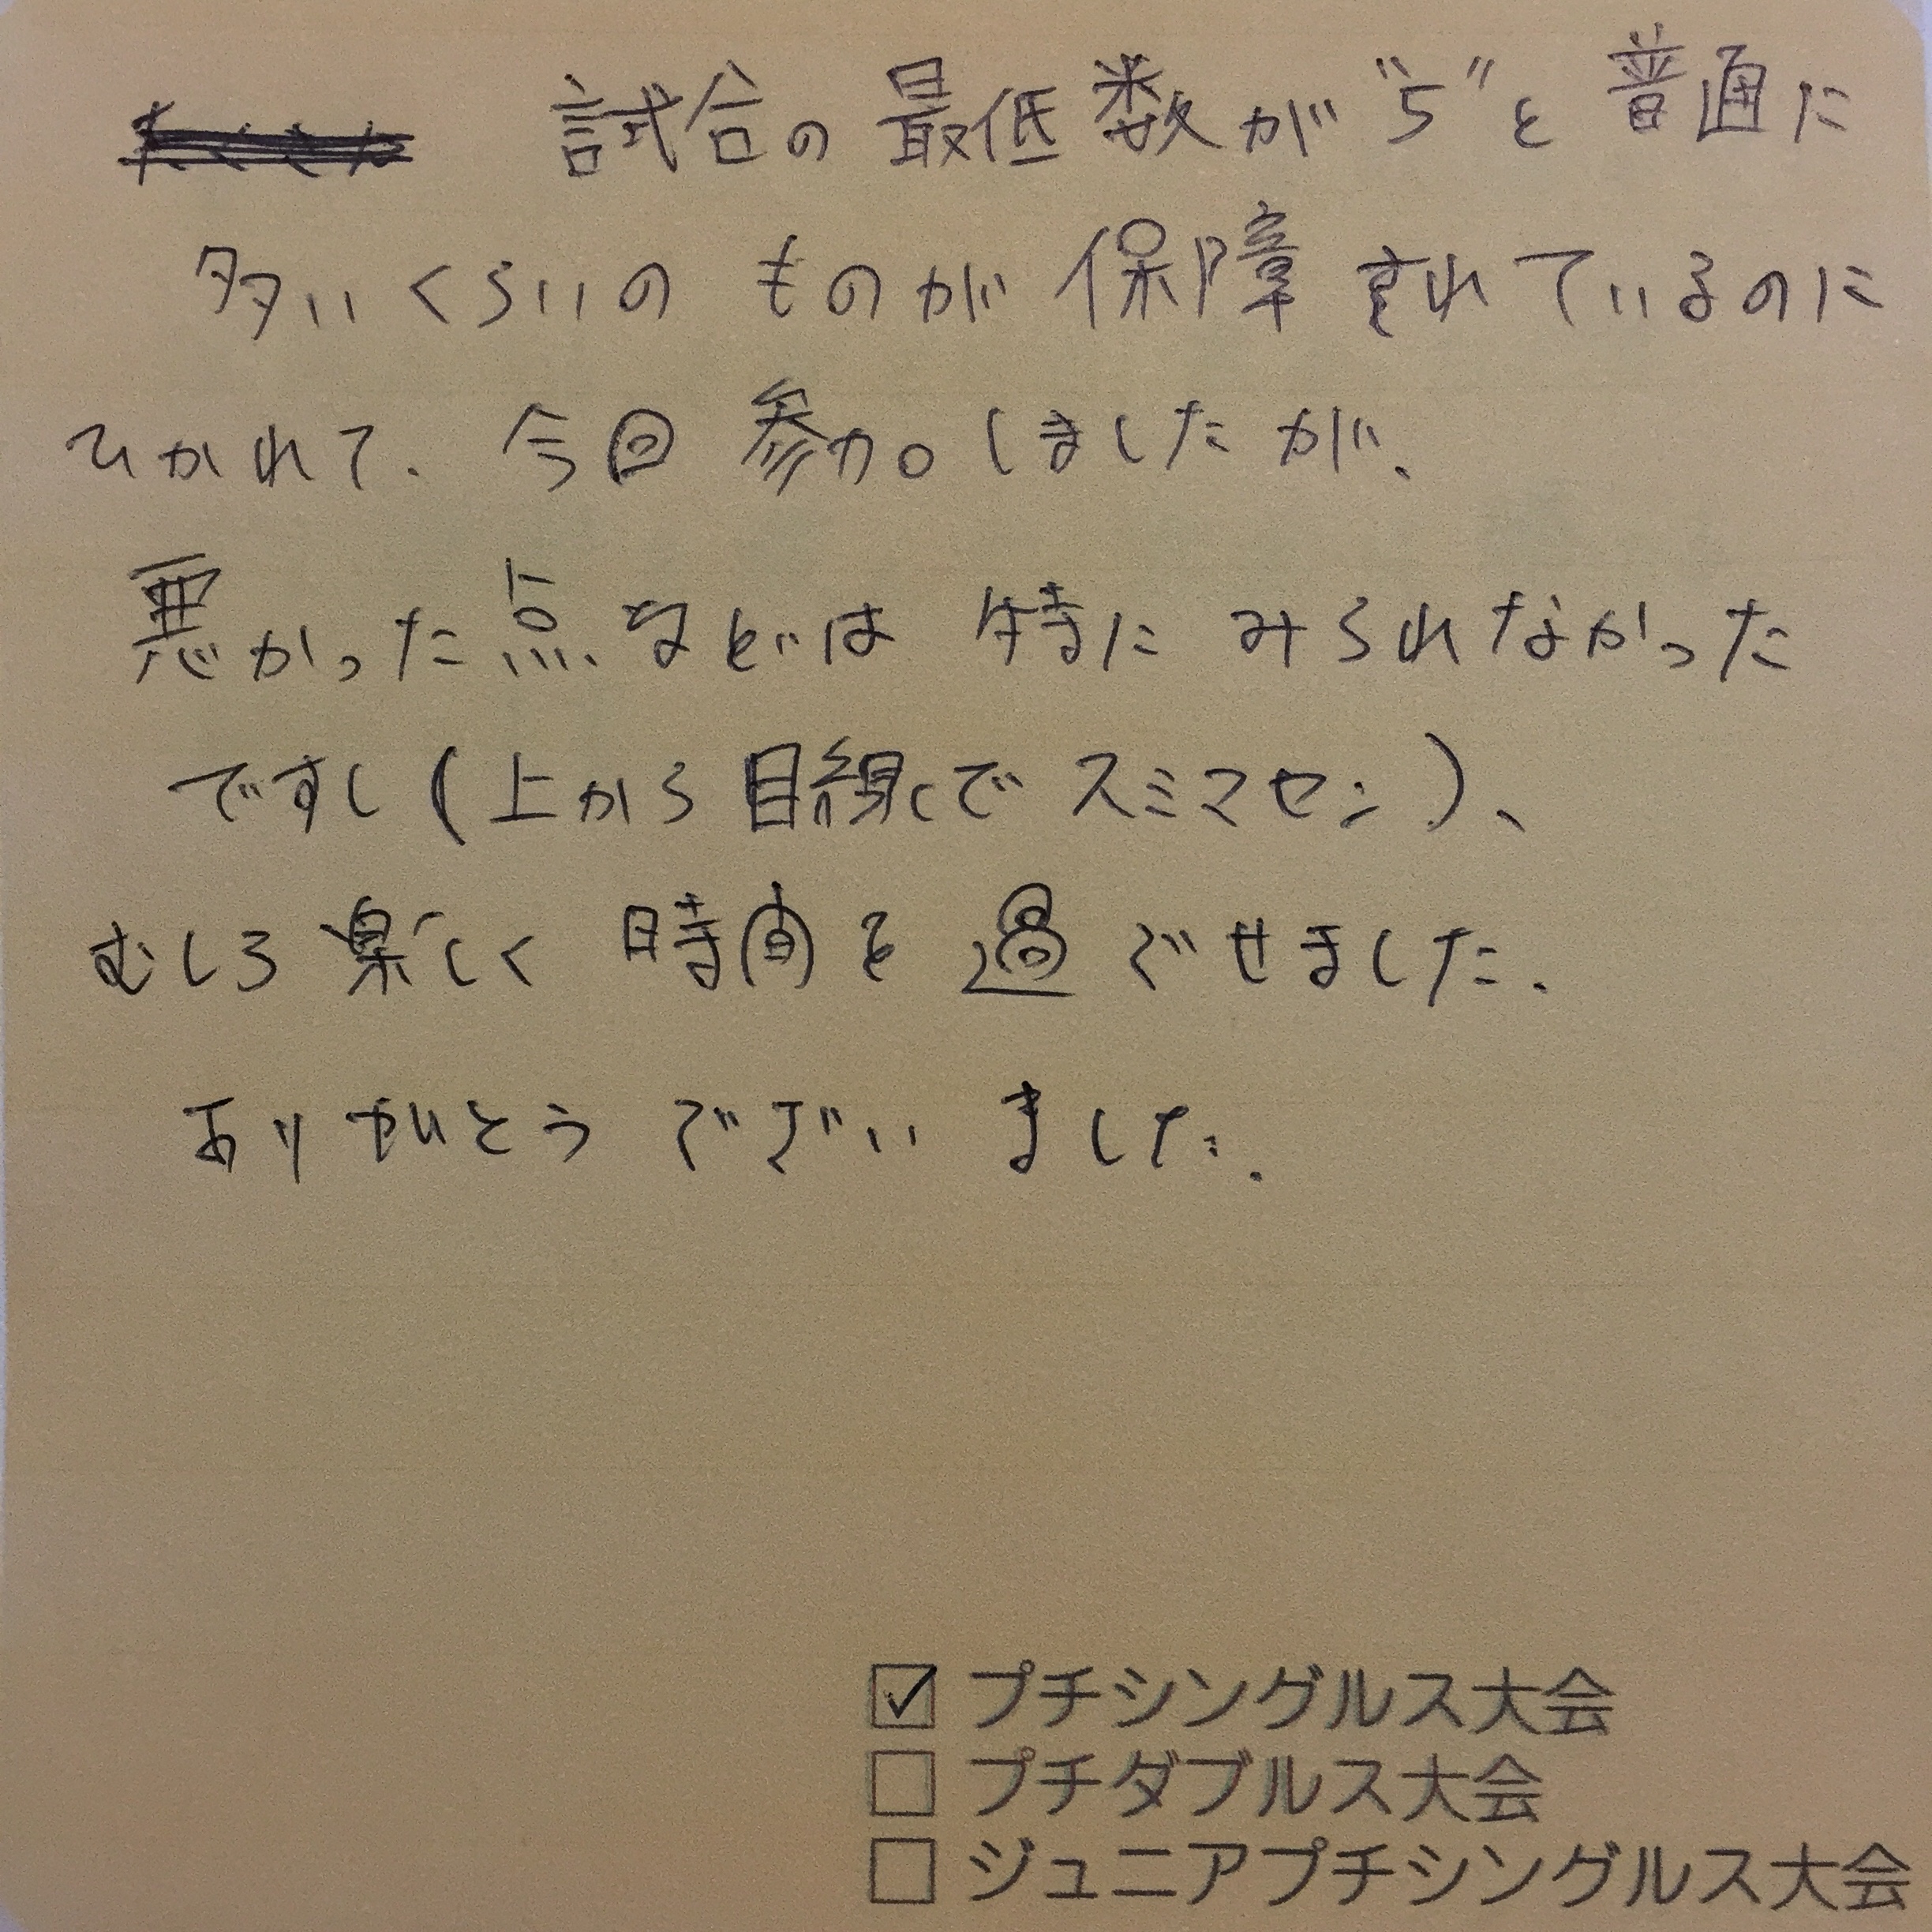 試合の最低数が"5"と普通に
多いくらいのものが保障されているのに
ひかれて、今回参加しましたが、
悪かった点などは特にみられなかった
ですし(上から目線でスミマセン)、
むしろ楽しく時間を過ごせました。
ありがとうございました。
☑ プチシングルス大会
☐ プチダブルス大会
☐ ジュニアプチシングルス大会